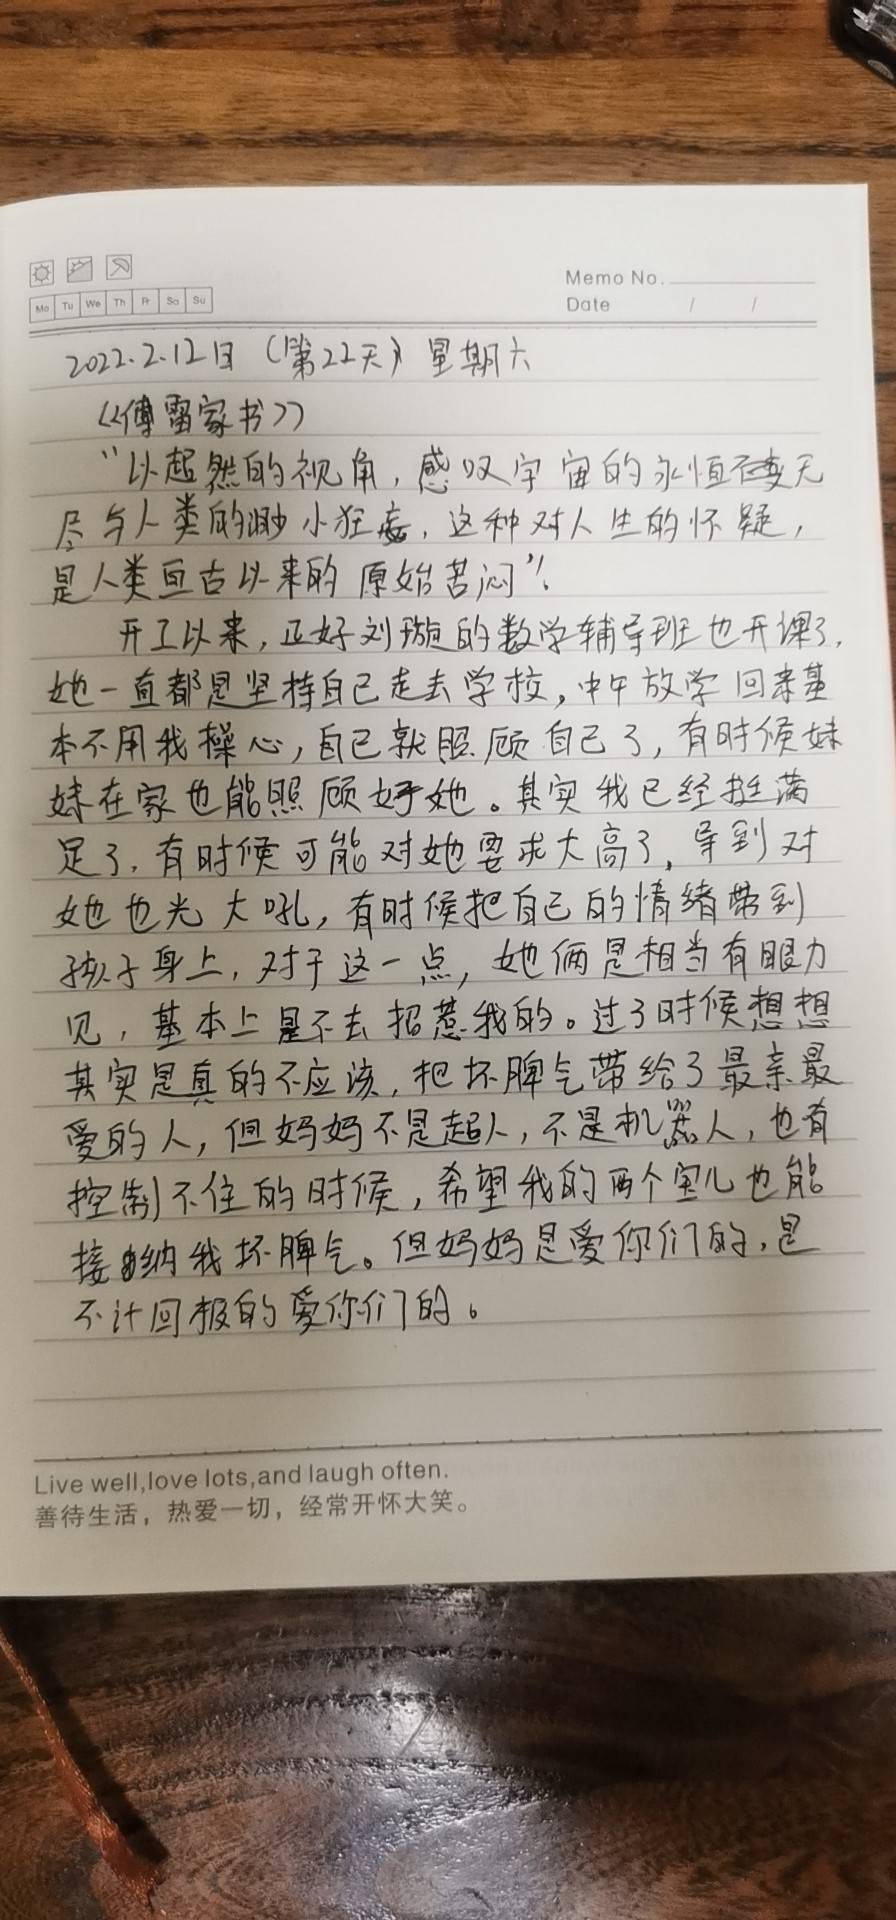 Memo No.
Mo Tu We Th Fr Sa Su
Date / /
2022.2.12日（第22天）星期六
《傅雷家书》
“以超然的视角，感叹宇宙的永恒无
尽与人类的渺小狂妄，这种对人生的怀疑，
是人类亘古以来的原始苦闷”！
开工以来，正好刘璇的数学辅导班也开课了，
她一直都是坚持自己走去学校，中午放学回来基
本不用我操心，自己就照顾自己了，有时候妹
妹在家也能照顾好她。其实我已经挺满
足了，有时候可能对她要求大高了，导到对
她也光大吼，有时候把自己的情绪带到
孩子身上，对于这一点，她俩是相当有眼力
见，基本上是不去招惹我的。过了时候想想
其实是真的不应该，把坏脾气带给了最亲最
爱的人，但妈妈不是超人，不是机器人，也有
控制不住的时候，希望我的两个宝儿也能
接纳我坏脾气。但妈妈是爱你们的，是
不计回报的爱你们的。
Live well,love lots,and laugh often.
善待生活，热爱一切，经常开怀大笑。